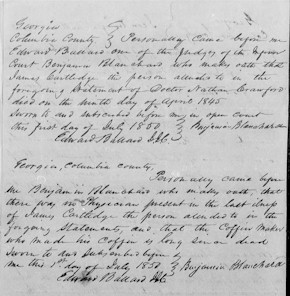 Georgia
Columbia County } Personally Came before me
Edward Bullard one of the Judges of the Inferior
Court Benjamin Blanchard who makes oath that
James Cartledge the person aluded to in the
foregoing Statement of Doctor Nathan Crawford
died on the ninth day of April 1845
Sworn to and subscribed before me in open court
this first day of July 1850 } Benjamin Blanchard
Edward Bullard
Georgia, Columbia County,
Personally came before
me Benjamin Blanchard who makes oath, that
there was no Physician present in the last days
of James Cartledge the person aluded to in the
forgoing Statements, and that the Coffin Maker
who made his Coffin is long since dead
Sworn to and Subscribed before
me this 1st day of July 1850 } Benjamin Blanchard
Edward Bullard